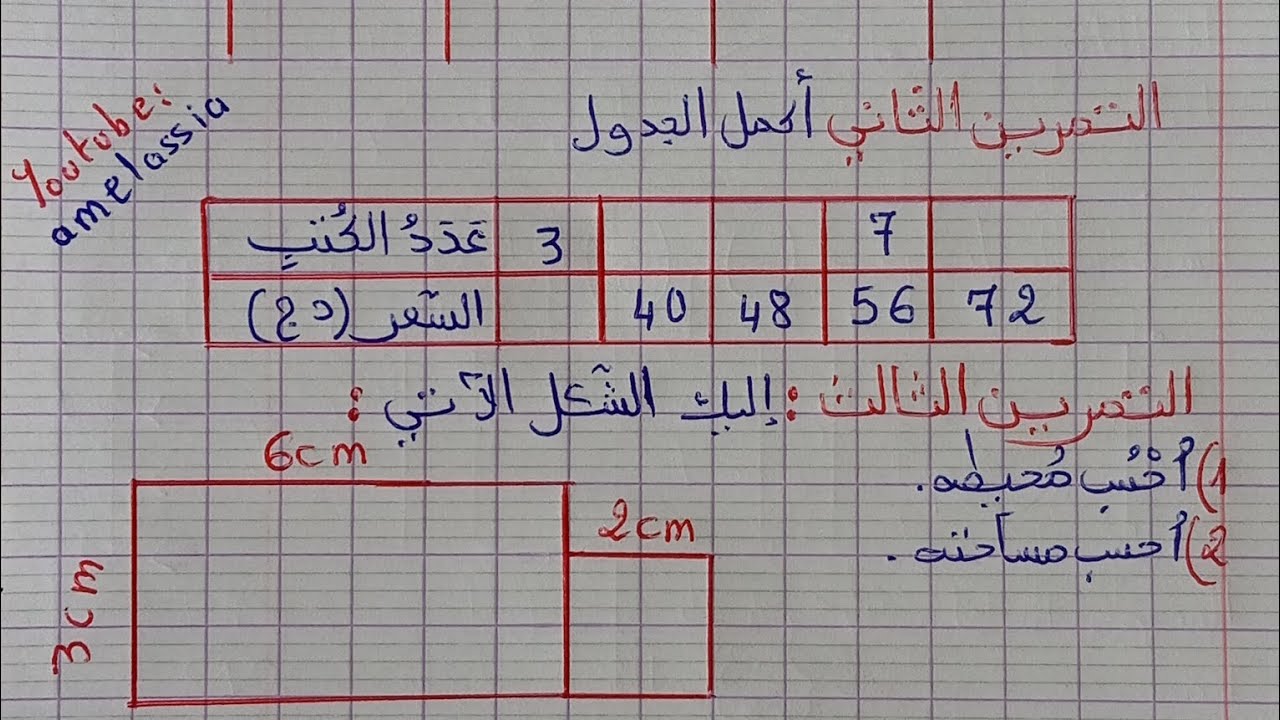 Youtube:
amelassia
التمرين الثاني أكمل الجدول
عَدَدُ الكُتبِ 3 7
السّعر (دج) 40 48 56 72
التمرين الثالث : إليك الشّكل الآتي :
1) أحْسُب مُحيطه.
2) أحسب مساحته.
6cm
2cm
3cm